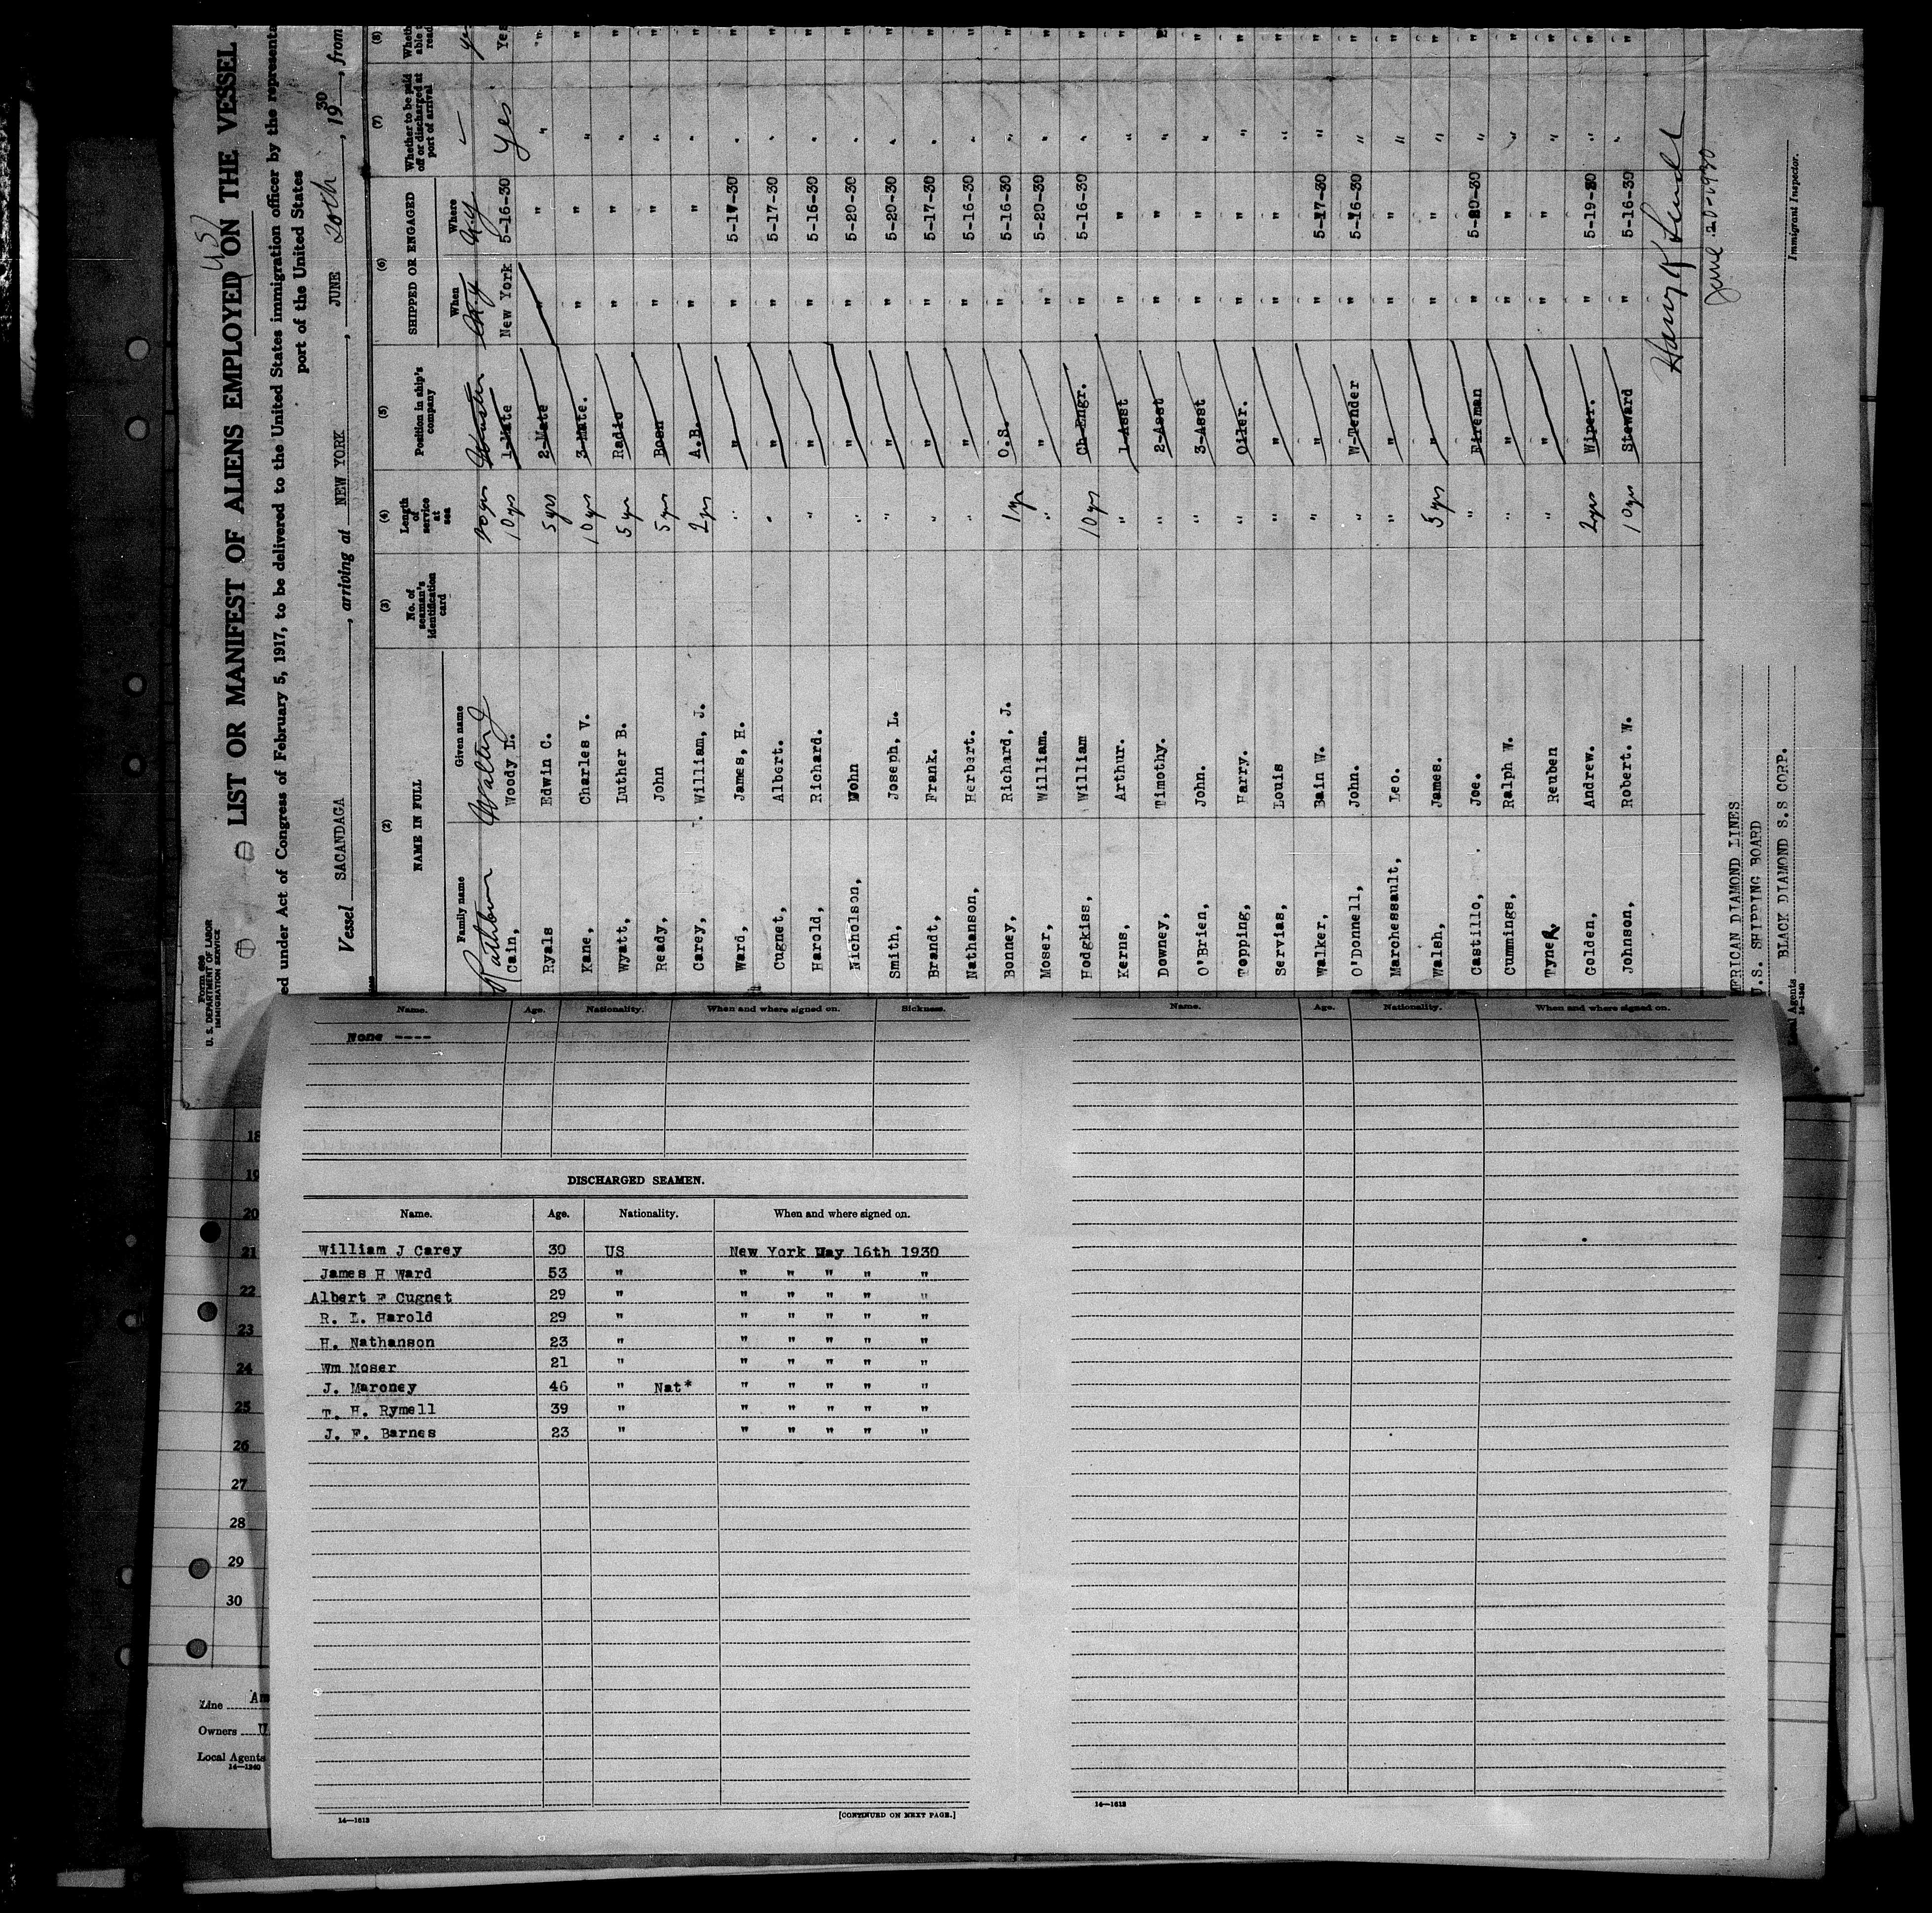 Form 686
U. S. DEPARTMENT OF LABOR
IMMIGRATION SERVICE
LIST OR MANIFEST OF ALIENS EMPLOYED ON THE VESSEL
ed under Act of Congress of February 5, 1917, to be delivered to the United States immigration officer by the represent
port of the United States
Vessel SACANDAGA, arriving at NEW YORK, JUNE 20th, 1930, from
(2) (3) (4) (5) (6) (7) (8)
NAME IN FULL No. of seaman's identification card Length of service at sea Position in ship's company SHIPPED OR ENGAGED Whether to be paid off or discharged at port of arrival
Family name Given name When Where
Rathbun Walter J 20 yrs Master N.Y N.Y — y
Cain, Woody L. 10 yrs 1-Mate New York 5-16-30 Yes Yes
Ryals Edwin C. 5 yrs 2-Mate " " " "
Kane, Charles V. 10 yrs 3-Mate. " " " "
Wyatt, Luther B. 5 yr Radio " " " "
Ready, John 5 yrs Bosn " " " "
Carey, William, J. 2 yrs A.B. " " " "
Ward, James, H. " " " 5-17-30 " "
Cugnet, Albert. " " " 5-17-30 " "
Harold, Richard. " " " 5-16-30 " "
Nicholson, John " " " 5-20-30 " "
Smith, Joseph, L. " " " 5-20-30 " "
Brandt, Frank. " " " 5-17-30 " "
Nathanson, Herbert. " " " 5-16-30 " "
Bonney, Richard, J. 1 yr O.S. " 5-16-30 " "
Moser, William. " " " 5-20-30 " "
Hodgkiss, William 10 yrs Ch Engr. " 5-16-30 " "
Kerns, Arthur. " 1-Asst " " " "
Downey, Timothy. " 2-Asst " " " "
O'Brien, John. " 3-Asst " " " "
Topping, Harry. " Oiler. " " " "
Servias, Louis " " " " " "
Walker, Bain W. " " " 5-17-30 " "
O'Donnell, John. " W-Tender " 5-16-30 " "
Marchessault, Leo. " " " " " "
Walsh, James. 5 yrs " " " " "
Castillo, Joe. " Fireman " 5-20-30 " "
Cummings, Ralph W. " " " " " "
TyneR. Reuben " " " " " "
Golden, Andrew. 2 yrs Wiper. " 5-19-30 " "
Johnson, Robert. W. 10 yrs Steward " 5-16-30 " "
June 20-1930
Immigrant Inspector.
MERICAN DIAMOND LINES
U.S. SHIPPING BOARD
Agents BLACK DIAMOND S.S CORP.
14—1240
Name. Age. Nationality. When and where signed on. Sickness.
None ----
DISCHARGED SEAMEN.
Name. Age. Nationality. When and where signed on.
William J Carey 30 US New York May 16th 1930
James H Ward 53 " " " " " "
Albert F Cugnet 29 " " " " " "
R. L. Harold 29 " " " " " "
H. Nathanson 23 " " " " " "
Wm Moser 21 " " " " " "
J. Maroney 46 " Nat* " " " " "
T. H. Rymell 39 " " " " " "
J. F. Barnes 23 " " " " " "
14—1613
[CONTINUED ON NEXT PAGE.]
Name. Age. Nationality. When and where signed on.
14—1613
18
19
20
21
22
23
24
25
26
27
28
29
30
Line Am
Owners U
Local Agents
14—1240